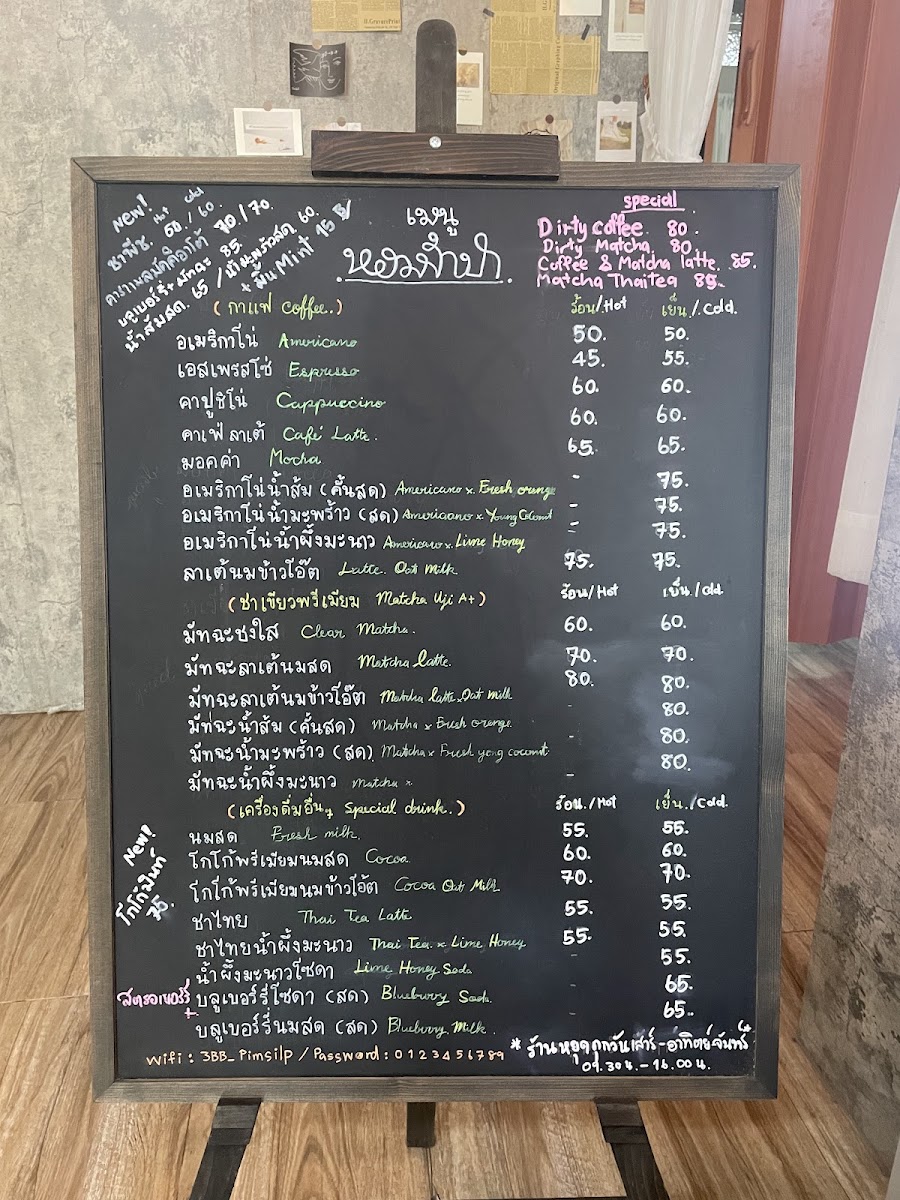 New! Hot Cold
ชาพีช 60 / 60
คาราเมลมัคคิอาโต้ 70 / 70
บลูเบอร์รี่มัทฉะ 85.
น้ำส้มสด 65 / น้ำมะพร้าวสด 60.
+ มิ้น Mint 15 ฿/
เมนู
special
Dirty coffee 80.
Dirty Matcha 80.
Coffee & Matcha latte 85.
Matcha Thaitea 85.
(กาแฟ coffee..) ร้อน/Hot เย็น/.Cold.
อเมริกาโน่ Americano 50. 50.
เอสเพรสโซ่ Espresso 45. 55.
คาปูชิโน่ Cappuccino 60. 60.
คาเฟ่ลาเต้ Café Latte. 60. 60.
มอคค่า Mocha 65. 65.
อเมริกาโน่น้ำส้ม (คั้นสด) Americano x Fresh orange - 75.
อเมริกาโน่น้ำมะพร้าว (สด) Americano x Young Coconut - 75.
อเมริกาโน่น้ำผึ้งมะนาว Americano x Lime Honey - 75.
ลาเต้นมข้าวโอ๊ต Latte Oat Milk 75. 75.
(ชาเขียวพรีเมียม Matcha Uji A+) ร้อน/Hot เย็น./Cold
มัทฉะชงใส Clear Matcha. 60. 60.
มัทฉะลาเต้นมสด Matcha latte. 70. 70.
มัทฉะลาเต้นมข้าวโอ๊ต Matcha latte x Oat milk 80. 80.
มัทฉะน้ำส้ม (คั้นสด) Matcha x Fresh orange - 80.
มัทฉะน้ำมะพร้าว (สด) Matcha x Fresh yong coconut - 80.
มัทฉะน้ำผึ้งมะนาว Matcha x - 80.
(เครื่องดื่มอื่นๆ Special drink.) ร้อน./Hot เย็น./Cold.
นมสด Fresh milk. 55. 55.
โกโก้พรีเมียมนมสด Cocoa 60. 60.
โกโก้พรีเมียมนมข้าวโอ๊ต Cocoa Oat Milk 70. 70.
New!
โกโก้มิ้นท์
75.
ชาไทย Thai Tea Latte 55. 55.
ชาไทยน้ำผึ้งมะนาว Thai Tea x Lime Honey 55. 55.
น้ำผึ้งมะนาวโซดา Lime Honey Soda 55.
สตรอเบอร์รี่ + บลูเบอร์รี่โซดา (สด) Blueberry Soda. 65.
บลูเบอร์รี่นมสด (สด) Blueberry Milk. 65.
Wifi : 3BB_Pimsilp / Password : 0123456789
* ร้านหยุดทุกวันเสาร์-อาทิตย์จันทร์*
09.30น. - 16.00 น.